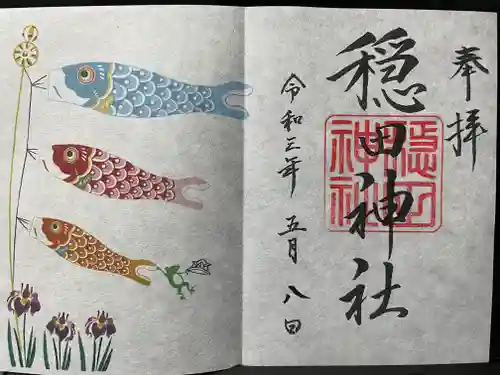 奉拝
穏田神社
穏田神社
令和三年 五月 八日